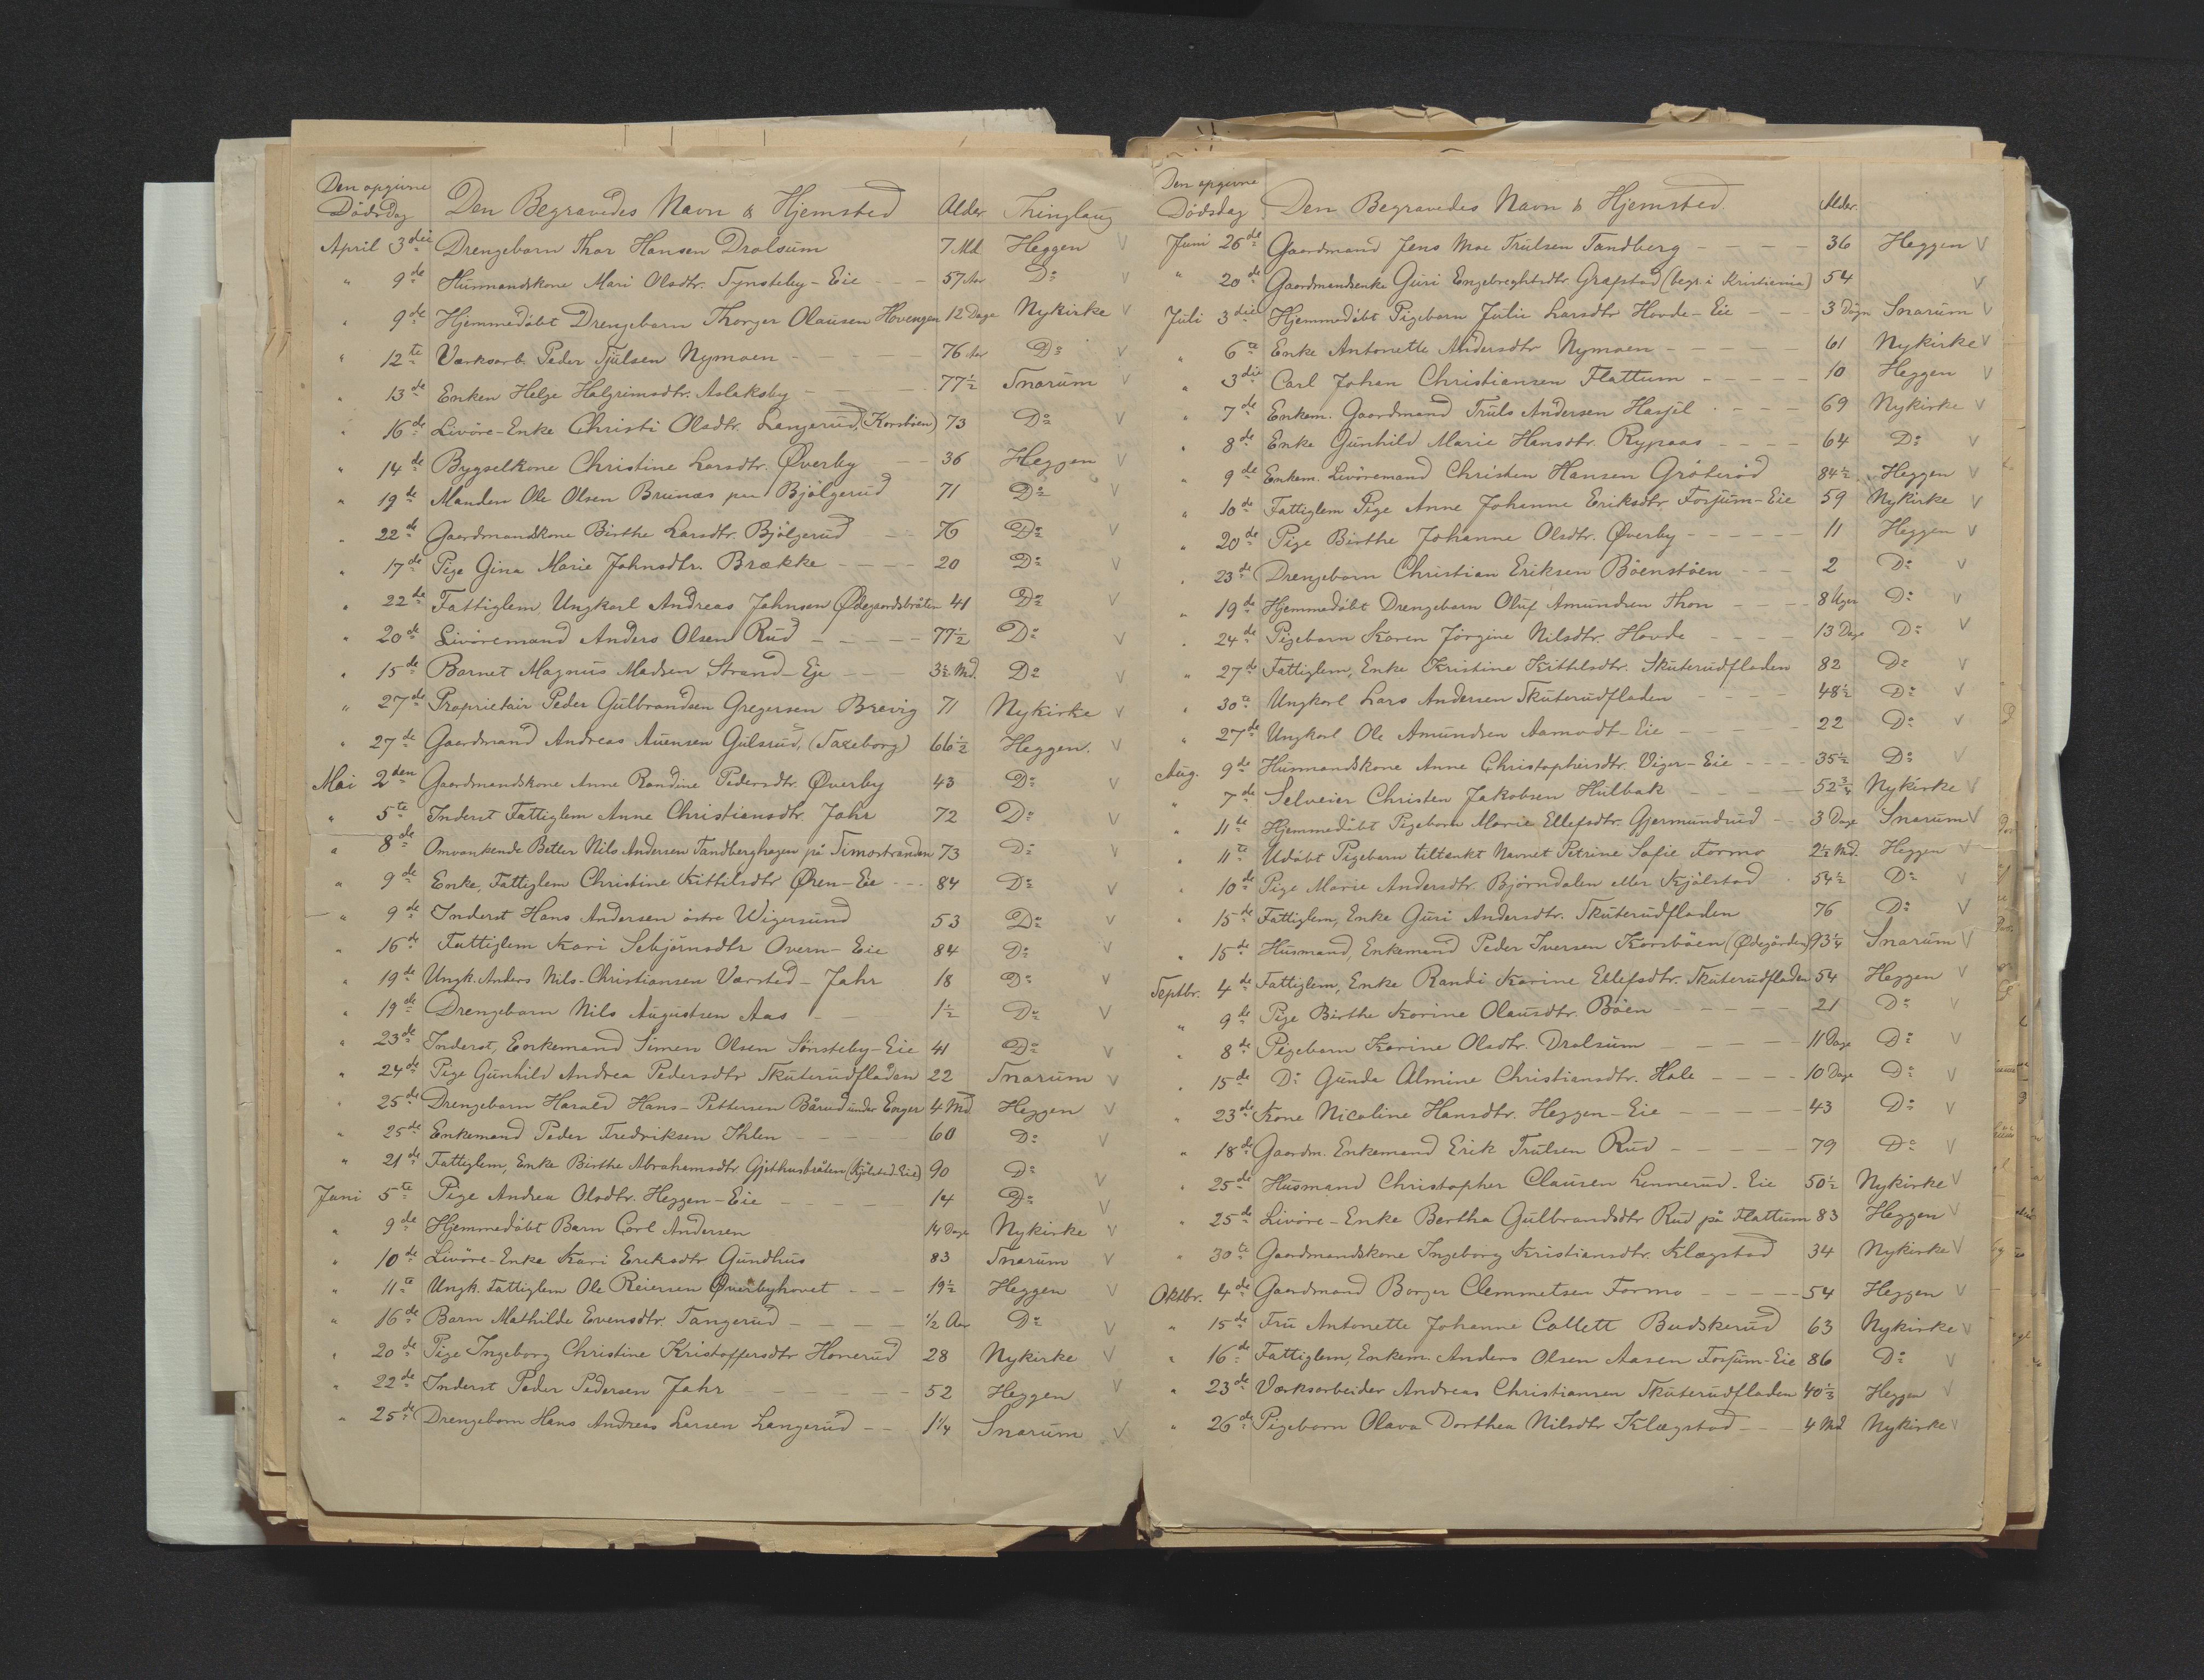 Den opgivne
Dödsdag Den Begravedes Navn & Hjemsted Alder Thinglaug
April 3die Drengebarn Thor Hansen Dralsum 7 Md. Heggen V
" 9de Husmandskone Mari Olsdtr. Tynsteby-Eie - - - 57 Aar Do V
" 9de Hjemmedöbt Drengebarn Thorger Olausen Hovengen 12 Dage Nykirke V
" 12te Værksarb. Peder Tjülsen Nymoen - 76 Aar Do V
" 13de Enken Helge Halgrimsdtr. Aslaksby - 77½ Snarum V
" 16de Livöre-Enke Christi Olsdtr. Langerud, (Korsböen) 73 Do V
" 14de Bygselkone Christine Larsdtr. Øverby 36 Heggen V
" 19de Manden Ole Olsen Brunæs paa Bjölgerud 71 Do V
" 22de Gaardmandskone Birthe Larsdtr. Bjölgerud - - - 76 Do V
" 17de Pige Gina Marie Johnsdtr. Brække - - - - 20 Do V
" 22de Fattiglem, Ungkarl Andreas Johnsen Ødegaardsbråten 41 Do V
" 20de Livöremand Anders Olsen Rud - - - - - 77½ Do V
" 15de Barnet Magnus Madsen Strand-Eje - - - 3½ Md. Do V
" 27de Proprietair Peder Gulbrandsen Gregersen Brevig 71 Nykirke V
" 27de Gaardmand Andreas Auensen Gulsrud, (Faxeborg) 66½ Heggen. V
Mai 2den Gaardmandskone Anne Randine Pedersdtr. Øverby 43 Do V
" 5te Inderst Fattiglem Anne Christiansdtr. Jahr 72 Do V
" 8de Omvankende Betler Nils Andersen Tandberghagen på Simostranden 73 Do V
" 9de Enke, Fattiglem Christine Kittilsdtr Øren-Eie - - - 84 Do V
" 9de Inderst Hans Andersen östre Wigersund 53 Do V
" 16de Fattiglem Kari Sebjörnsdtr Overn-Eie 84 Do V
" 19de Ungk. Anders Nils-Christiansen Værsted - Jahr 18 Do V
" 19de Drengebarn Nils Augustsen Aas - - 1½ Do V
" 23de Inderst, Enkemand Simen Olsen Sønsteby-Eie 41 Do V
" 24de Pige Gunhild Andrea Pedersdtr Skuterudfladen 22 Snarum V
" 25de Drengebarn Harald Hans-Pettersen Bårud under Enger 4 Md Heggen V
" 25de Enkemand Peder Fredriksen Ihlen - - - - - 60 Do V
" 21de Fattiglem, Enke Birthe Abrahamsdtr. Gjethusbråten (Kjölstad-Eie) 90 Do V
Juni 5te Pige Andrea Olsdtr. Heggen-Eie - - - - 14 Do V
" 9de Hjemmedöbt Barn Carl Andersen 14 Dage Nykirke V
" 10de Livöre-Enke Kari Eriksdtr Gundhus 83 Snarum V
" 11te Ungk. Fattiglem Ole Reiersen Øverbyhovet - - - 19½ Heggen V
" 16de Barn Mathilde Evensdtr. Tangerud - - - - ½ Aar Do V
" 20de Pige Ingeborg Christine Kristoffersdtr Honerud 28 Nykirke V
" 22de Inderst Peder Pedersen Jahr - - - - - 52 Heggen V
" 25de Drengebarn Hans Andreas Larsen Langerud - - 1¼ Snarum V
Den opgivne
Dödsdag Den Begravedes Navn & Hjemsted Alder.
Juni 26de Gaardmand Jens Moe Trulsen Tandberg - - - - 36 Heggen V
" 20de Gaardmandsenke Guri Engebreghtsdtr. Grafstad (begr. i Kristiania) 54 V
Juli 3die Hjemmedöbt Pigebarn Julie Larsdtr Hovde-Eie - - - 3 Dögn Snarum V
" 6te Enke Antonette Andersdtr Nymoen - - - - - 61 Nykirke V
" 3die Carl Johan Christiansen Flattum - - - - - 10 Heggen V
" 7de Enkem. Gaardmand Truls Andersen Hasjel - - - - 69 Nykirke V
" 8de Enke Gunhild Marie Hansdtr. Rypaas - - - - 64 Do V
" 9de Enkem. Livöremand Christen Hansen Gröteröd 84½ Heggen V
" 10de Fattiglem Pige Anne Johanne Eriksdtr Forsum-Eie 59 Nykirke V
" 20de Pige Birthe Johanne Olsdtr. Øverby - - - - - - 11 Heggen V
" 23de Drengebarn Christian Eriksen Böenstöen - - - 2 Do V
" 19de Hjemmedöbt Drengebarn Oluf Amundsen Thon - - - - 8 Uger Do V
" 24de Pigebarn Karen Jörgine Nilsdtr. Hovde - - - - 13 Dage Do V
" 27de Fattiglem, Enke Kristine Kittilsdtr. Skuterudfladen 82 Do V
" 30te Ungkarl Lars Andersen Skuterudfladen - - - - 48½ Do V
" 27de Ungkarl Ole Amundsen Aamodt-Eie - - - - - 22 Do V
Aug. 9de Husmandskone Anne Christophersdtr. Viger-Eie - - - - 35½ Do V
" 7de Selveier Christen Jakobsen Hulbak - - - - - 52¾ Nykirke V
" 11te Hjemmedöbt Pigebarn Marie Ellefsdtr. Gjermundrud - - 3 Dage Snarum V
" 11te Udöbt Pigebarn tiltænkt Navnet Petrine Sofie Formo 2½ Md. Heggen V
" 10de Pige Marie Andersdtr. Björndalen eller Kjölstad - 54½ Do V
" 15de Fattiglem, Enke Guri Andersdtr. Skuterudfladen 76 Do V
" 15de Husmand, Enkemand Peder Iversen Korsböen (Ødegården) 93¼ Snarum V
Septbr. 4de Fattiglem, Enke Randi Karine Ellefsdtr. Skuterudfladen 54 Heggen V
" 9de Pige Birthe Karine Olausdtr. Böen - - - - - 21 Do V
" 8de Pigebarn Karine Olsdtr. Dralsum - - - - - 11 Dage Do V
" 15de Do Gunda Almine Christiansdtr. Hole - - - - 10 Dage Do V
" 23de Kone Nicoline Hansdtr. Heggen-Eie - - - - - 43 Do V
" 18de Gaardm. Enkemand Erik Trulsen Rud - - - - - 79 Do V
" 25de Husmand Christopher Clausen Lennerud-Eie 50½ Nykirke V
" 25de Livöre-Enke Bertha Gulbrandsdtr Rud på Flattum 83 Heggen V
" 30te Gaardmandskone Ingeborg Kristiansdtr. Klægstad 34 Nykirke V
Oktbr. 4de Gaardmand Borger Clemmetsen Formo - - - - - 54 Heggen V
" 15de Fru Antonette Johanne Collett Buskerud 63 Nykirke V
" 16de Fattiglem, Enkem. Anders Olsen Aasen Forsum-Eie 86 Do V
" 23de Værksarbeider Andreas Christiansen Skuterudfladen 40⅓ Heggen V
" 26de Pigebarn Olava Dorthea Nilsdtr Klægstad - - - 4 Md Nykirke V